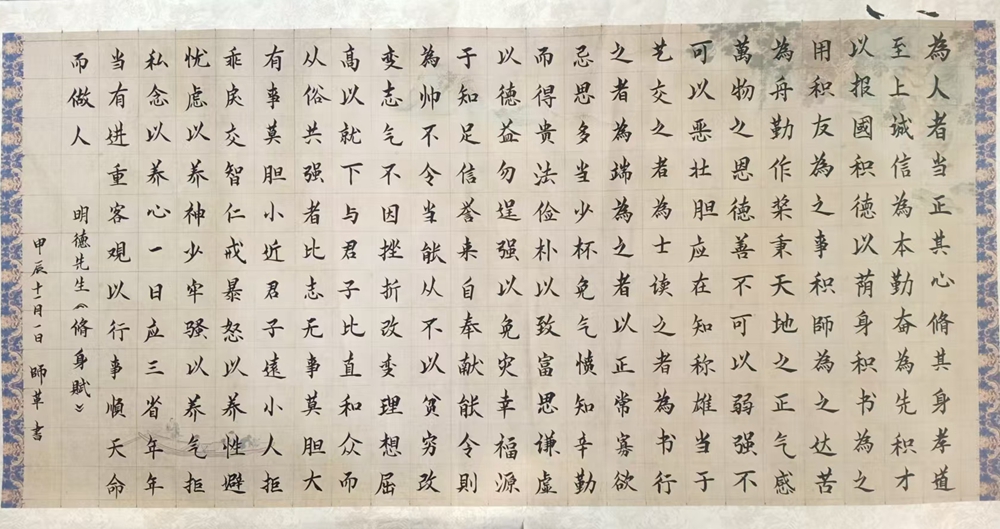 為人者当正其心脩其身孝道
至上诚信為本勤奋為先积才
以报國积德以荫身积书為之
用积友為之事积師為之达苦
為舟勤作桨秉天地之正气感
萬物之恩德善不可以弱强不
可以恶壮胆应在知称雄当于
艺交之者為士读之者為书行
之者為端為之者以正常寡欲
忌思多当少杯免气愤知辛勤
而得貴法俭朴以致富思谦虚
以德益勿逞强以免灾幸福源
于知足信誉来自奉献能令則
為帅不令当能从不以贫穷改
变志气不因挫折改变理想屈
高以就下与君子比直和众而
从俗共强者比志无事莫胆大
有事莫胆小近君子遠小人拒
乖戾交智仁戒暴怒以养性避
忧虑以养神少牢骚以养气拒
私念以养心一日应三省年年
当有进重客观以行事順天命
而做人 明德先生《脩身賦》
甲辰十二月一日 師革 書